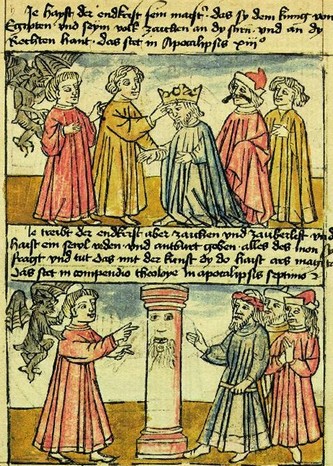 Je hayst der endkrist sein maist(er) das sy dem kunig von
Egipten und seym volk zaichen an dy stirn und an dy
Rechten hant das stet in Apocalipsis xiij°
Je treibt der endkrist aber zaichen und zauberlist und
haist ein sewl reden und antwurt geben alles des man sy
fragt und tut das mit der kunst dy do haist ars magica
Das stet in compendio theologye in apocalipsis septimo